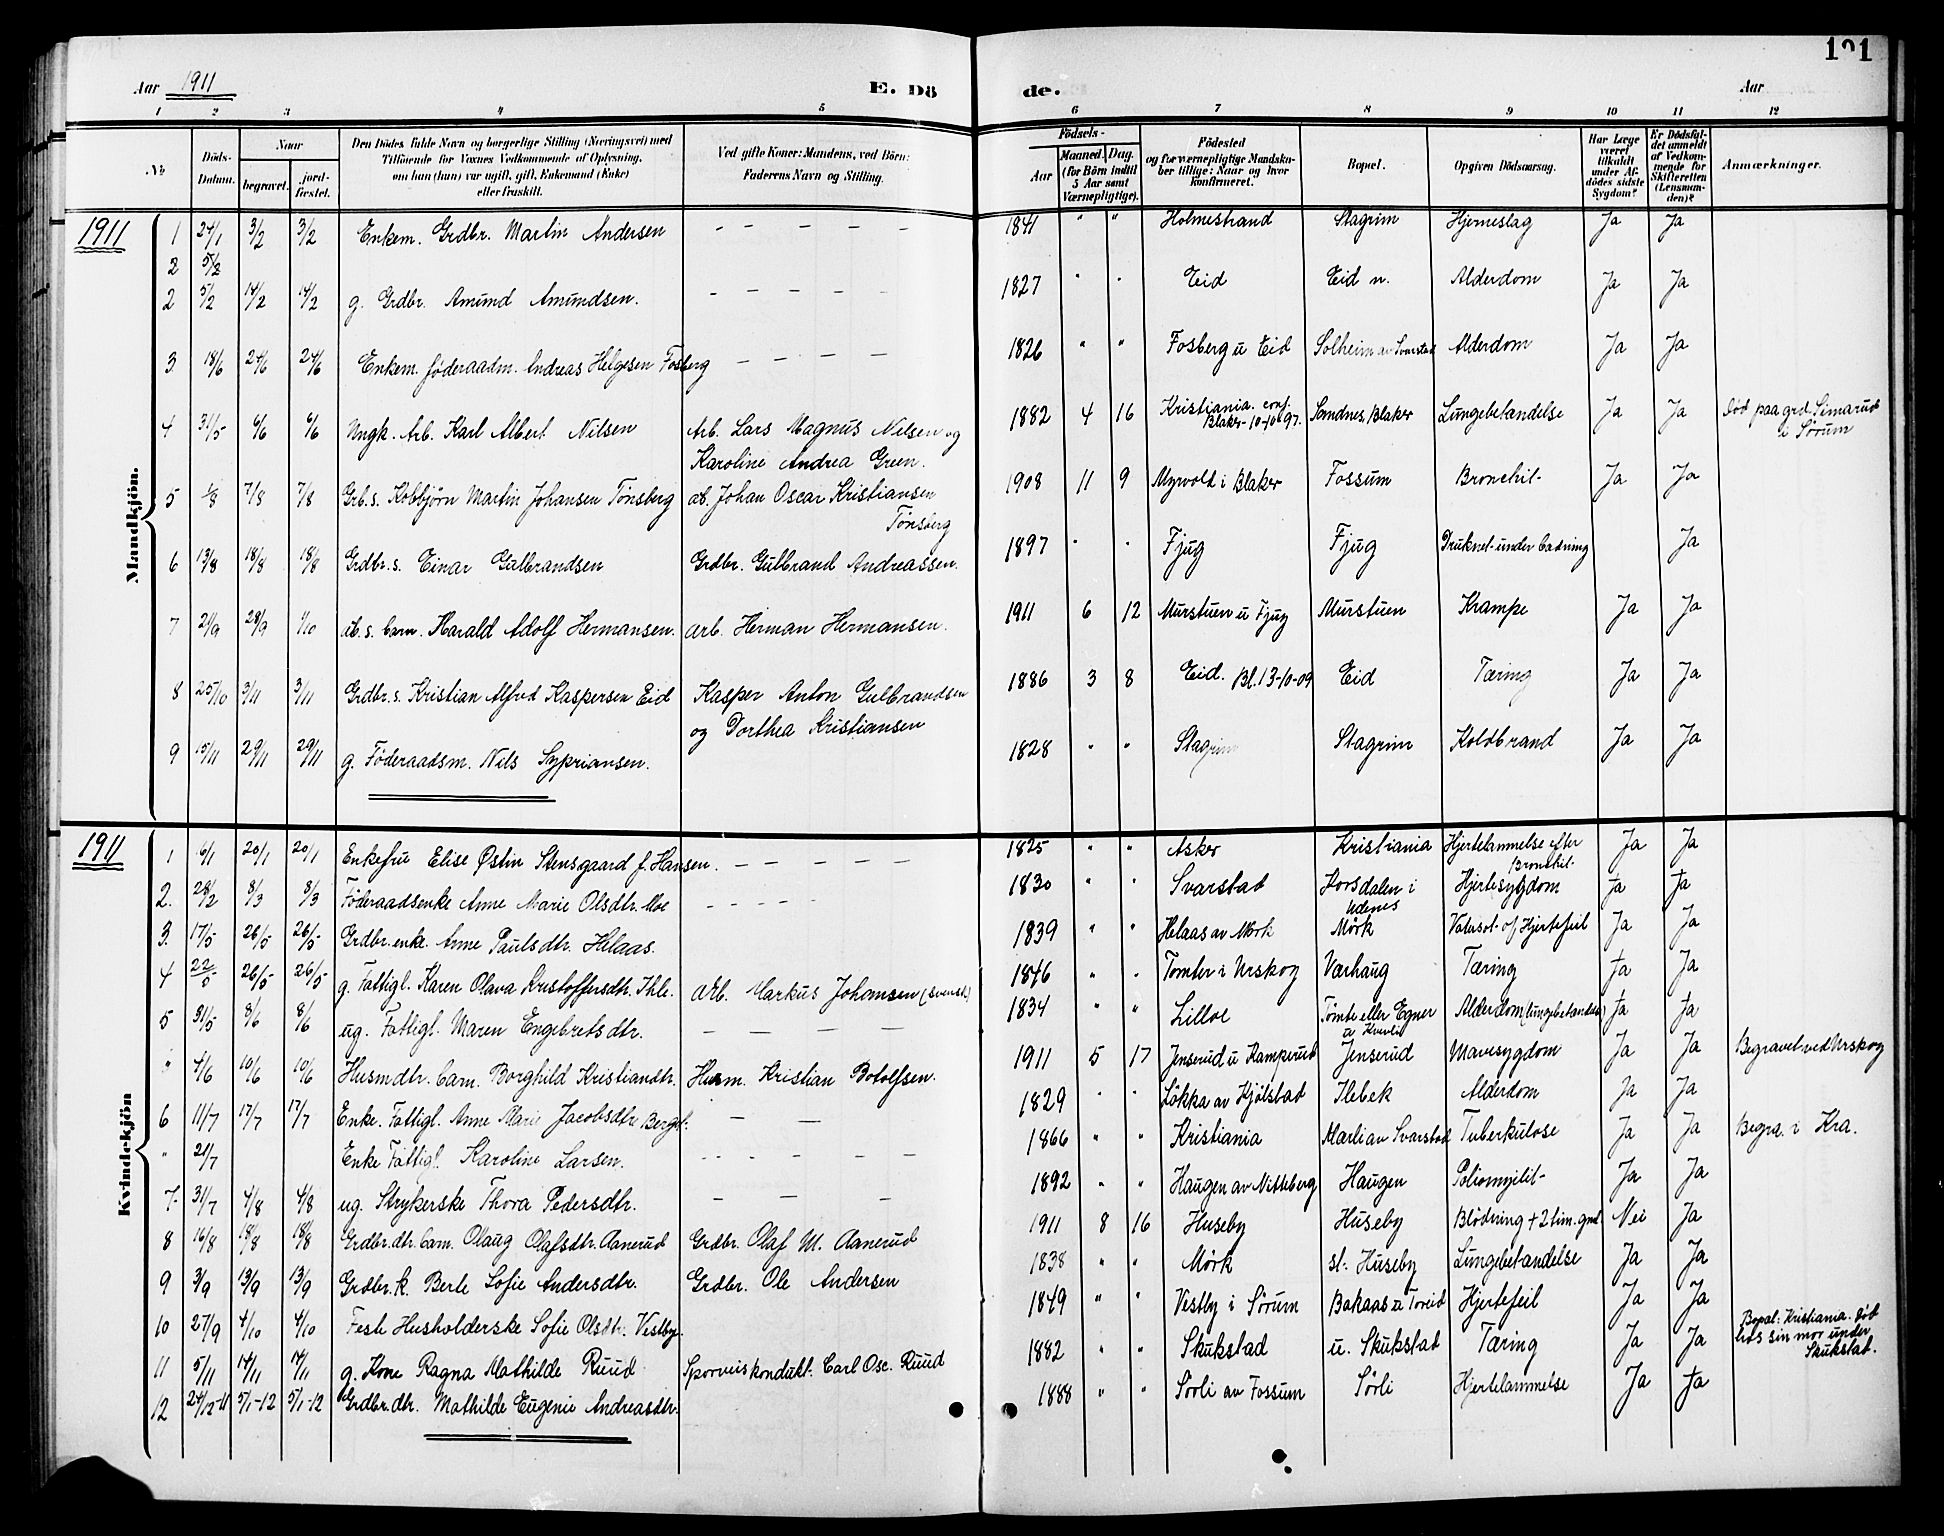 191
Aar 1911
E. Dö
de.
Aar
1 2 3 4 5 6 7 8 9 10 11 12
No
Döds-Datum.
Naar
begravet.
jord-fæstet.
Den Dödes fulde Navn og borgerlige Stilling (Næringsvei) med
Tilföiende for Voxnes Vedkommende af Oplysning,
om han (hun) var ugift, gift, Enkemand (Enke)
eller fraskilt.
Ved gifte Koner: Mandens, ved Börn:
Faderens Navn og Stilling.
Födsels-
Aar
Maaned. Dag.
(for Börn indtil
5 Aar samt
Værnepligtige).
Födested
og for værnepligtige Mandskaber
tillige: Naar og hvor
konfirmeret.
Bopæl.
Opgiven Dödsaarsag.
Har Læge
været
tilkaldt
under Afdödes
sidste
Sygdom?
Er Dödsfaldet
anmeldt
af Vedkommende
for
Skifteretten
(Lensmanden)?
Anmærkninger.
Mandkjön.
1911 1 24/1 3/2 3/2 Enkem. Grdbr. Martin Andersen – – – – – 1841 " " Holmestrand Stagrim Hjerneslag Ja Ja
2 5/2
2 5/2 14/2 14/2 g. Grdbr. Amund Amundsen. – – – – – 1827 " " Eid Eid n. Alderdom Ja Ja
3 18/6 24/6 24/6 Enkem. føderaadm. Andreas Helgesen Fosberg – – – – 1826 " " Fosberg u Eid Solheim av Svarstad Alderdom Ja Ja
4 31/5 6/6 6/6 Ungk. Arb. Karl Albert Nilsen Arb. Lars Magnus Nilsen og 1882 4 16 Kristiania. conf. Sandnes, Blaker Lungebetændelse Ja Ja Død paa grd. Simarud
Karoline Andrea Green. Blaker 10-10-97. i Sørum
5 1/8 7/8 7/8 Grb.s. Kolbjørn Martin Johansen Tønsberg ab. Johan Oscar Kristiansen 1908 11 9 Myrvold i Blaker Fossum Bronchit- Ja Ja
Tønsberg
6 13/8 18/8 18/8 Grdbr.s. Einar Gulbrandsen Grdbr. Gulbrand Andreassen. 1897 " " Fjug Fjug Druknet under badning Ja
7 21/9 28/9 1/10 ab.s. barn. Harald Adolf Hermansen. Arb. Herman Hermansen. 1911 6 12 Murstuen u Fjug Murstuen Krampe Ja Ja
8 25/10 3/11 3/11 Grdbr.s. Kristian Alfred Kaspersen Eid Kasper Anton Gulbrandsen 1886 3 8 Eid. Bl. 3-10-09 Eid Tæring Ja Ja
og Dorthea Kristiansen
9 15/11 29/11 29/11 g. Føderaadsm. Nils Sypriansen. 1828 " " Stagrim Stagrim Koldbrand Ja Ja
Kvindekjön
1911 1 6/1 20/1 20/1 Enkefru Elise Østin Stensgaard f. Hansen. – – – – 1825 " " Asker Kristiania Hjertelammelse efter Ja Ja
Bronchit-
2. 28/2 8/3 8/3 Føderaadsenke Anne Marie Olsdtr. Moe – – – – – 1830 " " Svarstad Korsdalen i Hjertesygdom Ja Ja
Udenes
3. 17/5 26/5 26/5 Grdbr.enke. Anne Paulsdtr. Helaas. 1839 " " Helaas av Mørk Mörk Vatersot- og Hjertefeil Ja Ja
4 22/5 26/5 26/5 g. Fattigl. Karen Olava Kristoffersdtr. Ihle. Arb. Markus Johansen (svensk) 1846 " " Tomter i Urskog Varhaug Tæring Ja Ja
5 31/5 8/6 8/6 ug. Fattigl. Maren Engebretsdtr. – – – – 1834 " " Lilloe Tomte eller Egner Alderdom (lungebetændelse) Ja Ja
" 4/6 10/6 10/6 Husmdtr. barn. Borghild Kristiandtr. Husm. Kristian Botolfsen. 1911 5 17 Jenserud u Kamperud Jenserud Mavesygdom Ja Ja Begravet ved Urskog
6 11/7 17/7 17/7 Enke. Fattigl. Anne Marie Jacobsdtr. – – 1829 " " Løkka av Kjølstad Ilebek Alderdom Ja Ja
" 21/7 Enke Fattigl. Karoline Larsen. – – – – – 1866 " " Kristiania Marli av Svarstad Tuberkulose Ja Ja Begra. i Kra.
7 31/7 4/8 4/8 ug. Strykerske Thora Pedersdtr. – – – 1892 " " Haugen av Nitteberg Haugen Poliomyelit- Ja Ja
8 16/8 18/8 18/8 Grdbr.dtr. barn. Olaug Olafsdtr. Aanerud Grdbr. Olaf M. Aanerud 1911 8 16 Huseby Huseby Blødning + 2 tim. gml. Nei Ja
9 3/9 13/9 13/9 Grdbr.k. Berte Sofie Andersdtr. Grdbr. Ole Andersen 1838 " " Mørk st. Huseby Lungebetændelse Ja Ja
10 27/9 4/10 4/10 Fest Husholderske Sofie Olsdtr. Vestby. 1849 " " Vestby i Sørum Bakaas u Toreid Hjertefeil Ja Ja
11 5/11 14/11 14/11 g. Kone Ragna Mathilde Ruud Sporveiskondukt. Carl Osc. Ruud 1882 " " Skukstad u. Skukstad Tæring Ja Ja Bopæl: Kristiania. Død
hos sin mor under
Skukstad.
12 24/12-11 5/1-12 5/1-12 Grdbr.dtr. Mathilde Eugenie Andreasdtr. 1888 " " Sörli av Fossum Sørli Hjertelammelse Ja Ja